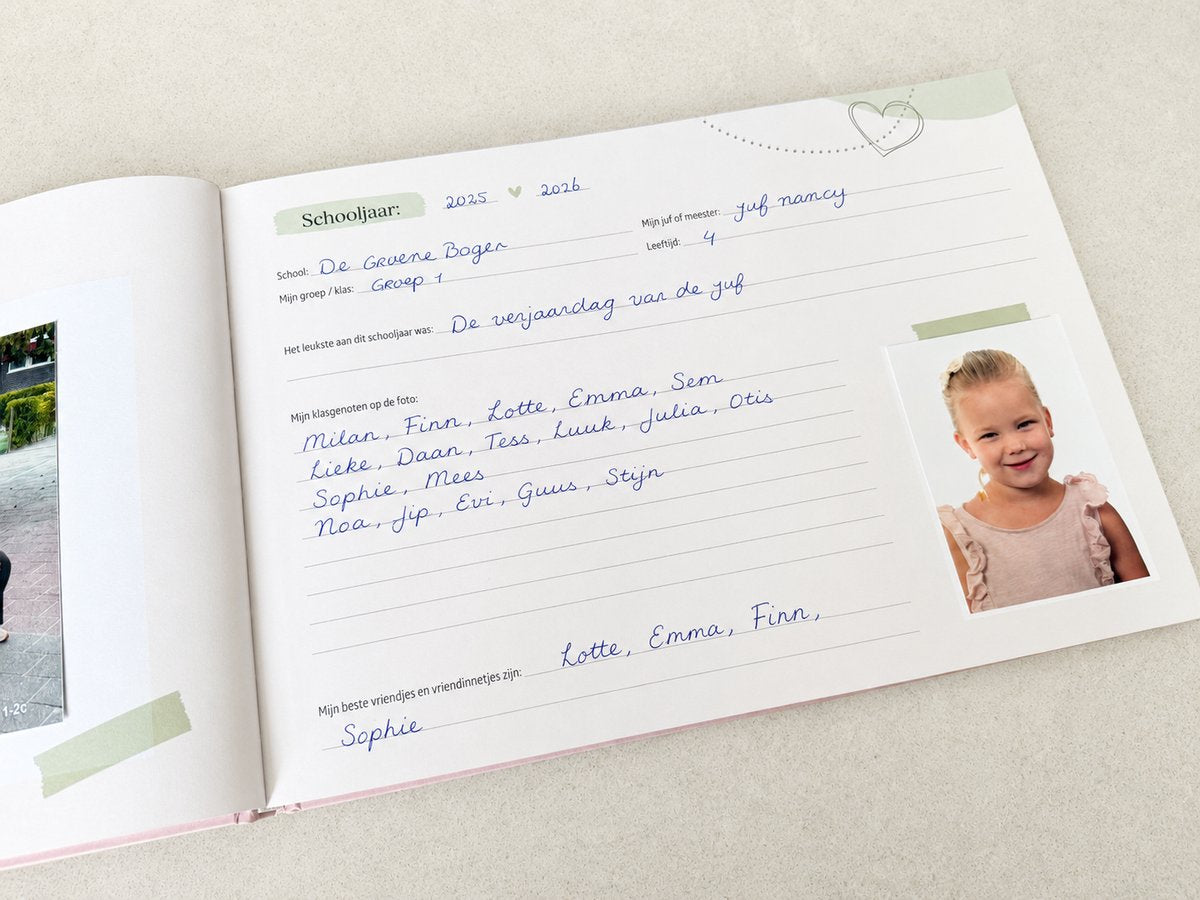 Schooljaar: 2025 2026
School: De Groene Bogen
Mijn groep / klas: Groep 1
Mijn juf of meester: juf nancy
Leeftijd: 4
Het leukste aan dit schooljaar was: De verjaardag van de juf
Mijn klasgenoten op de foto:
Milan, Finn, Lotte, Emma, Sem
Lieke, Daan, Tess, Luuk, Julia, Otis
Sophie, Mees
Noa, Jip, Evi, Guus, Stijn
Mijn beste vriendjes en vriendinnetjes zijn: Lotte, Emma, Finn,
Sophie
1-2c